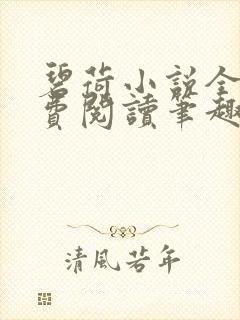 碧荷小说全
费閱讀筆趣
清風若年